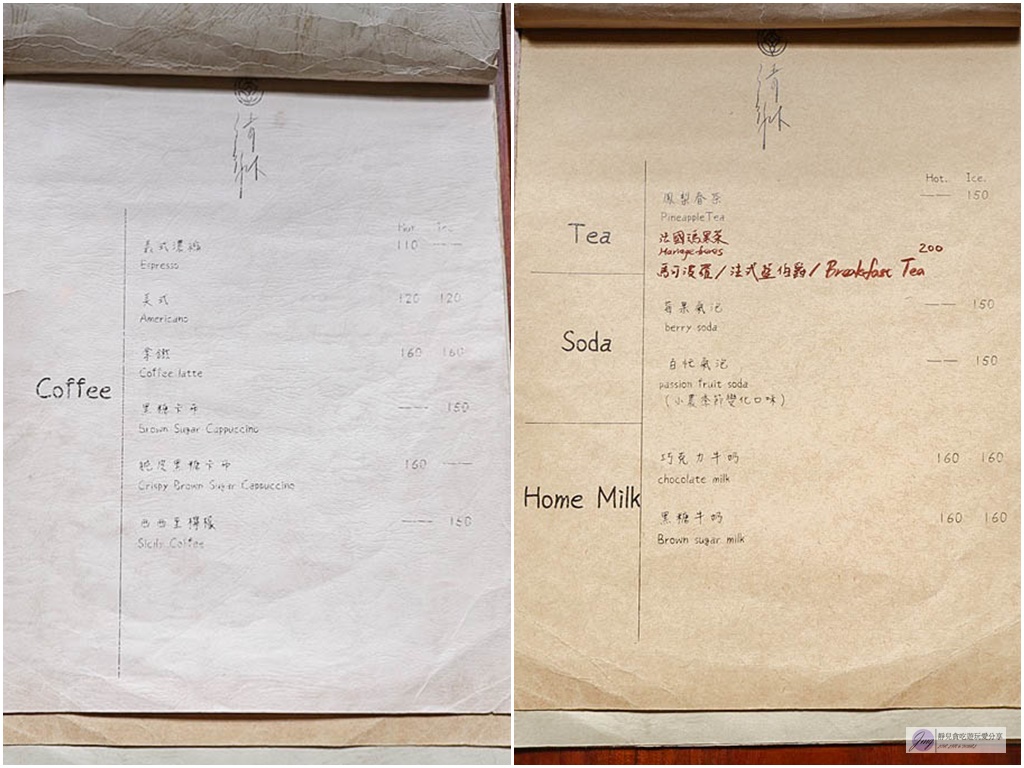 Hot. Ice.
義式濃縮 110 ——
Espresso
美式 120 120
Americano
拿鐵 160 160
Coffee latte
Coffee
黑糖卡布 —— 150
Brown Sugar Cappuccino
脆皮黑糖卡布 160 ——
Crispy Brown Sugar Cappuccino
西西里檸檬 —— 150
Sicily Coffee
Hot. Ice.
鳳梨香茶 —— 150
PineappleTea
Tea
法國瑪黑茶
200
馬可波羅/法式藍伯爵/Breakfast Tea
莓果氣泡 —— 150
berry soda
Soda
百香氣泡 —— 150
passion fruit soda
(小農季節變化口味)
巧克力牛奶 160 160
chocolate milk
Home Milk
黑糖牛奶 160 160
Brown sugar milk
靜兒貪吃遊玩愛分享